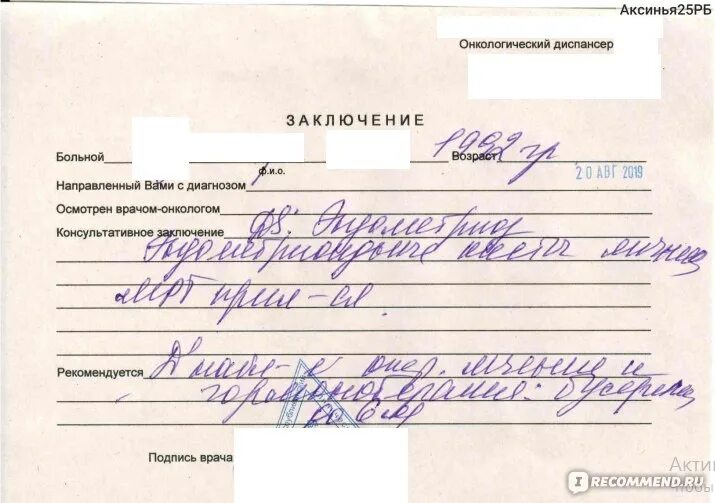 Аксинья25РБ
Онкологический диспансер
ЗАКЛЮЧЕНИЕ
Больной Возраст 1992 гр
ф.и.о.
20 АВГ 2019
Направленный Вами с диагнозом
Осмотрен врачом-онкологом
Консультативное заключение DS: Эндометриоз
Эндометриоидные кисты яичников
МРТ прил-ся
Рекомендуется опер. лечение и
гормонотерапия: бусерелин
Подпись врача
Акти
I RECOMMEND.RU